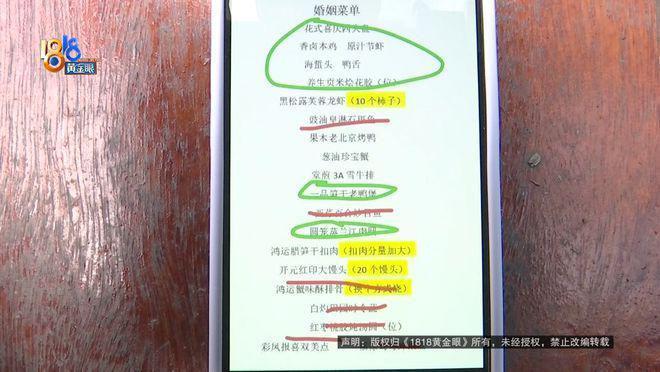 1818
黄金眼
婚姻菜单
花式喜庆四大盘
香卤本鸡 原汁节虾
海蜇头 鸭舌
养生贡米烩花胶（位）
黑松露芙蓉龙虾（10个柿子）
豉油皇淋石斑鱼
果木老北京烤鸭
葱油珍宝蟹
堂煎3A雪牛排
一品笋干老鸭煲
圆笼蒸兰江肉圆
鸿运腊笋干扣肉（扣肉分量加大）
开元红印大馒头（20个馒头）
鸿运蟹味酥排骨（换牛方式烧）
白灼田园时令蔬
红枣桃胶炖汤圆（位）
彩凤报喜双美点
声明：版权归《1818黄金眼》所有，未经授权，禁止改编转载